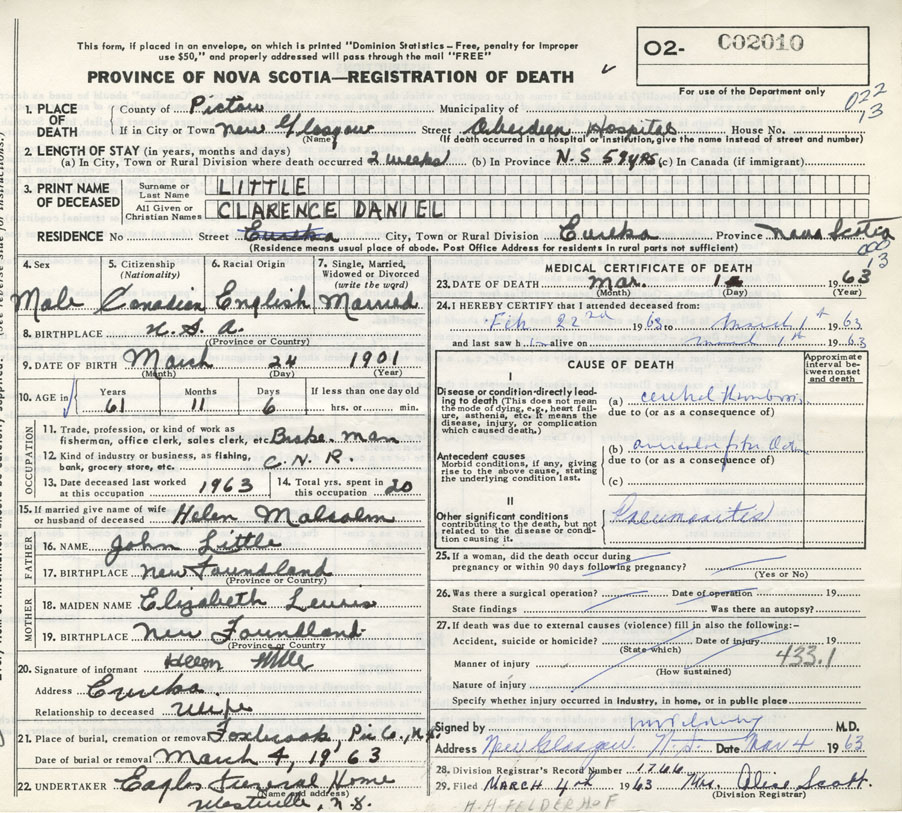 This form, if placed in an envelope, on which is printed "Dominion Statistics — Free, penalty for improper
use $50," and properly addressed will pass through the mail "FREE"
O2- C02010
PROVINCE OF NOVA SCOTIA—REGISTRATION OF DEATH
For use of the Department only
022
13
1. PLACE OF DEATH
County of Pictou Municipality of
If in City or Town New Glasgow Street Aberdeen Hospital House No.
(Name) (If death occurred in a hospital or institution, give the name instead of street and number)
2. LENGTH OF STAY (in years, months and days)
(a) In City, Town or Rural Division where death occurred 2 weeks (b) In Province N.S 59 yrs (c) In Canada (if immigrant)
3. PRINT NAME OF DECEASED
Surname or Last Name LITTLE
All Given or Christian Names CLARENCE DANIEL
RESIDENCE No Street Eureka City, Town or Rural Division Eureka Province Nova Scotia
Residence means usual place of abode. Post Office Address for residents in rural parts not sufficient)
000
13
4. Sex 5. Citizenship (Nationality) 6. Racial Origin 7. Single, Married, Widowed or Divorced (write the word)
Male Canadian English Married
8. BIRTHPLACE U.S.A.
(Province or Country)
9. DATE OF BIRTH March 24 1901
(Month) (Day) (Year)
10. AGE in Years Months Days If less than one day old
61 11 6 hrs. or min.
OCCUPATION
11. Trade, profession or kind of work as
fisherman, office clerk, sales clerk, etc. Brake. man
12. Kind of industry or business, as fishing,
bank, grocery store, etc. C.N.R.
13. Date deceased last worked at this occupation 1963 14. Total yrs. spent in this occupation 20
15. If married give name of wife
or husband of deceased Helen Malcolm
FATHER
16. NAME John Little
17. BIRTHPLACE New Foundland
(Province or Country)
MOTHER
18. MAIDEN NAME Elizabeth Lewis
19. BIRTHPLACE New Foundland
(Province or Country)
20. Signature of informant Helen
Address Eureka.
Relationship to deceased Wife
21. Place of burial, cremation or removal Foxbrook, Pic Co., N.S.
Date of burial or removal March 4, 1963
22. UNDERTAKER Eagles Funeral Home
(Name and address)
Westville, N.S.
MEDICAL CERTIFICATE OF DEATH
23. DATE OF DEATH Mar. 1 1963
(Month) (Day) (Year)
24. I HEREBY CERTIFY that I attended deceased from:
Feb 22nd 1963 to March 1st 1963
and last saw him alive on March 1st 1963
CAUSE OF DEATH
Approximate interval between onset and death
I
Disease or condition directly leading to death (This does not mean
the mode of dying, e.g., heart failure, asthenia, etc. It means the
disease, injury, or complication which caused death.)
(a) cerebral thrombosis
due to (or as a consequence of)
Antecedent causes
Morbid conditions, if any, giving
rise to the above cause, stating
the underlying condition last.
(b)
due to (or as a consequence of)
(c)
II
Other significant conditions
contributing to the death, but not
related to the disease or condition causing it.
25. If a woman, did the death occur during
pregnancy or within 90 days following pregnancy?
(Yes or No)
26. Was there a surgical operation? Date of operation 19
State findings Was there an autopsy?
27. If death was due to external causes (violence) fill in also the following:—
Accident, suicide or homicide? Date of injury 19
(State which)
433.1
Manner of injury
(How sustained)
Nature of injury
Specify whether injury occurred in industry, in home, or in public place
Signed by M.D.
Address New Glasgow N.S. Date Mar 4 1963
28. Division Registrar's Record Number 1766
29. Filed MARCH 4 1963 Mrs. Alice Scott.
(Division Registrar)
H.H FELDERHOF